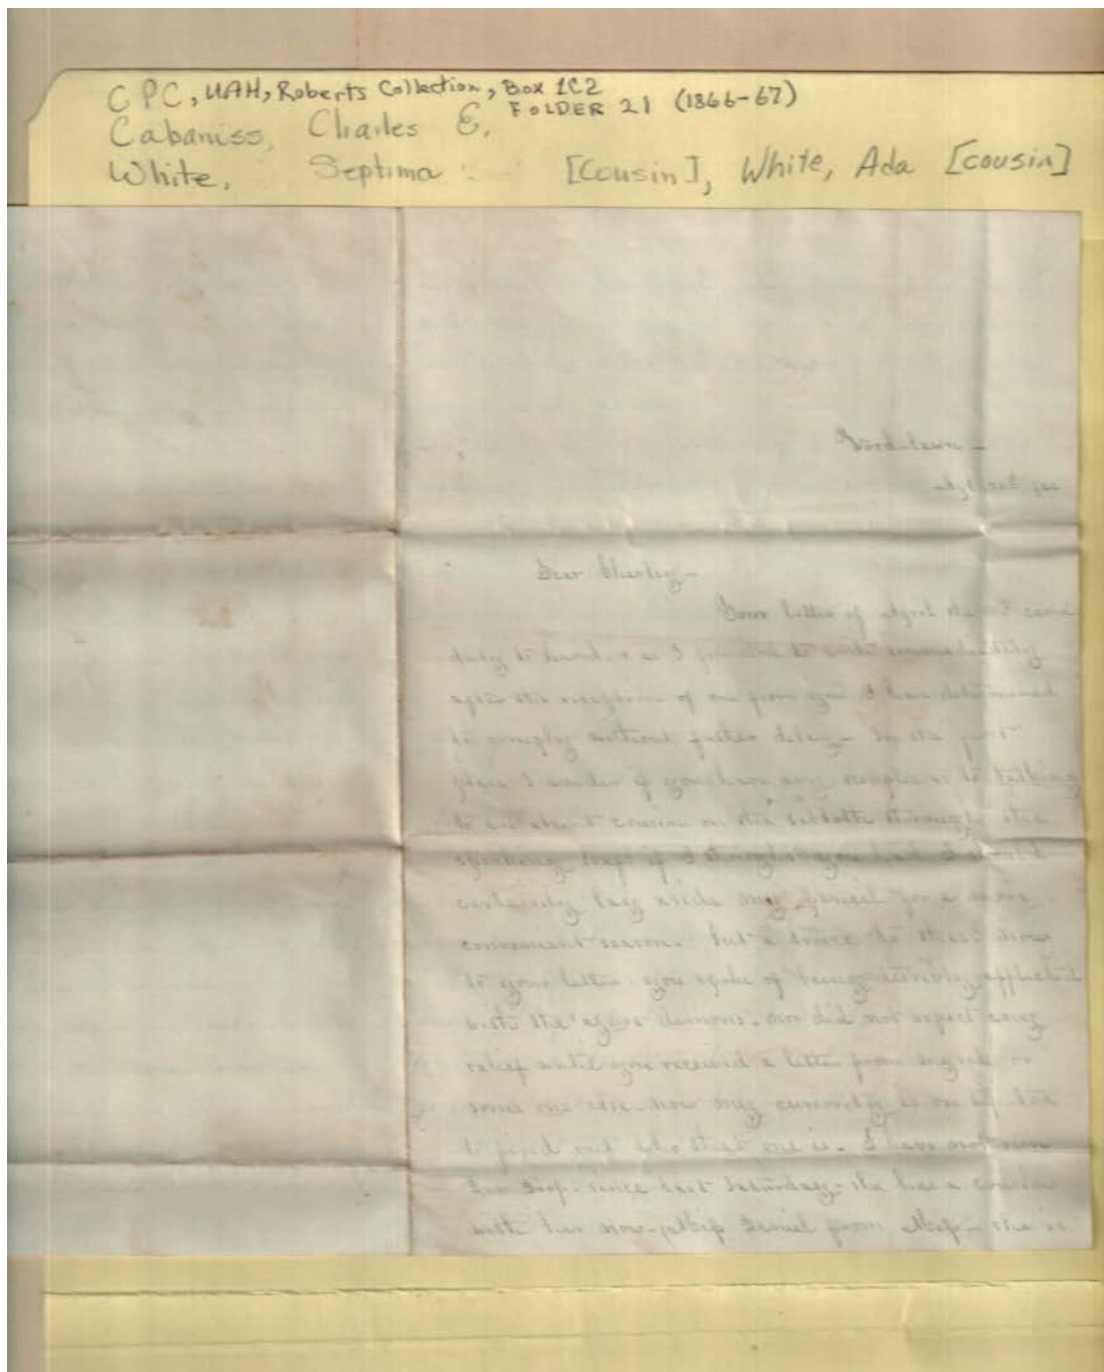 CPC, UAH, Roberts Collection, Box 1C2
FOLDER 21 (1866-67)
Cabaniss, Charles E.
White, Septima [Cousin], White, Ada [cousin]
Dear Charley—
Your letter of April the came
duly to hand, & as I promised to write immediately
after the reception of one from you I have determined
to comply without further delay— In the first
place I wonder if you have any scruples as to talking
to cousin on the sabbath through the
speaking if I thought you had I would
certainly lay aside my pencil for a more
convenient season. But a truce to this. now
to your letter. you spoke of being terribly afflicted
with the demons. did not expect any
relief until you received a letter from myself or
some one else. now my curiosity is on
to find out who that one is. I have not seen
since last Saturday— she has a cousin
with her now. Miss Daniel from Miss— she is